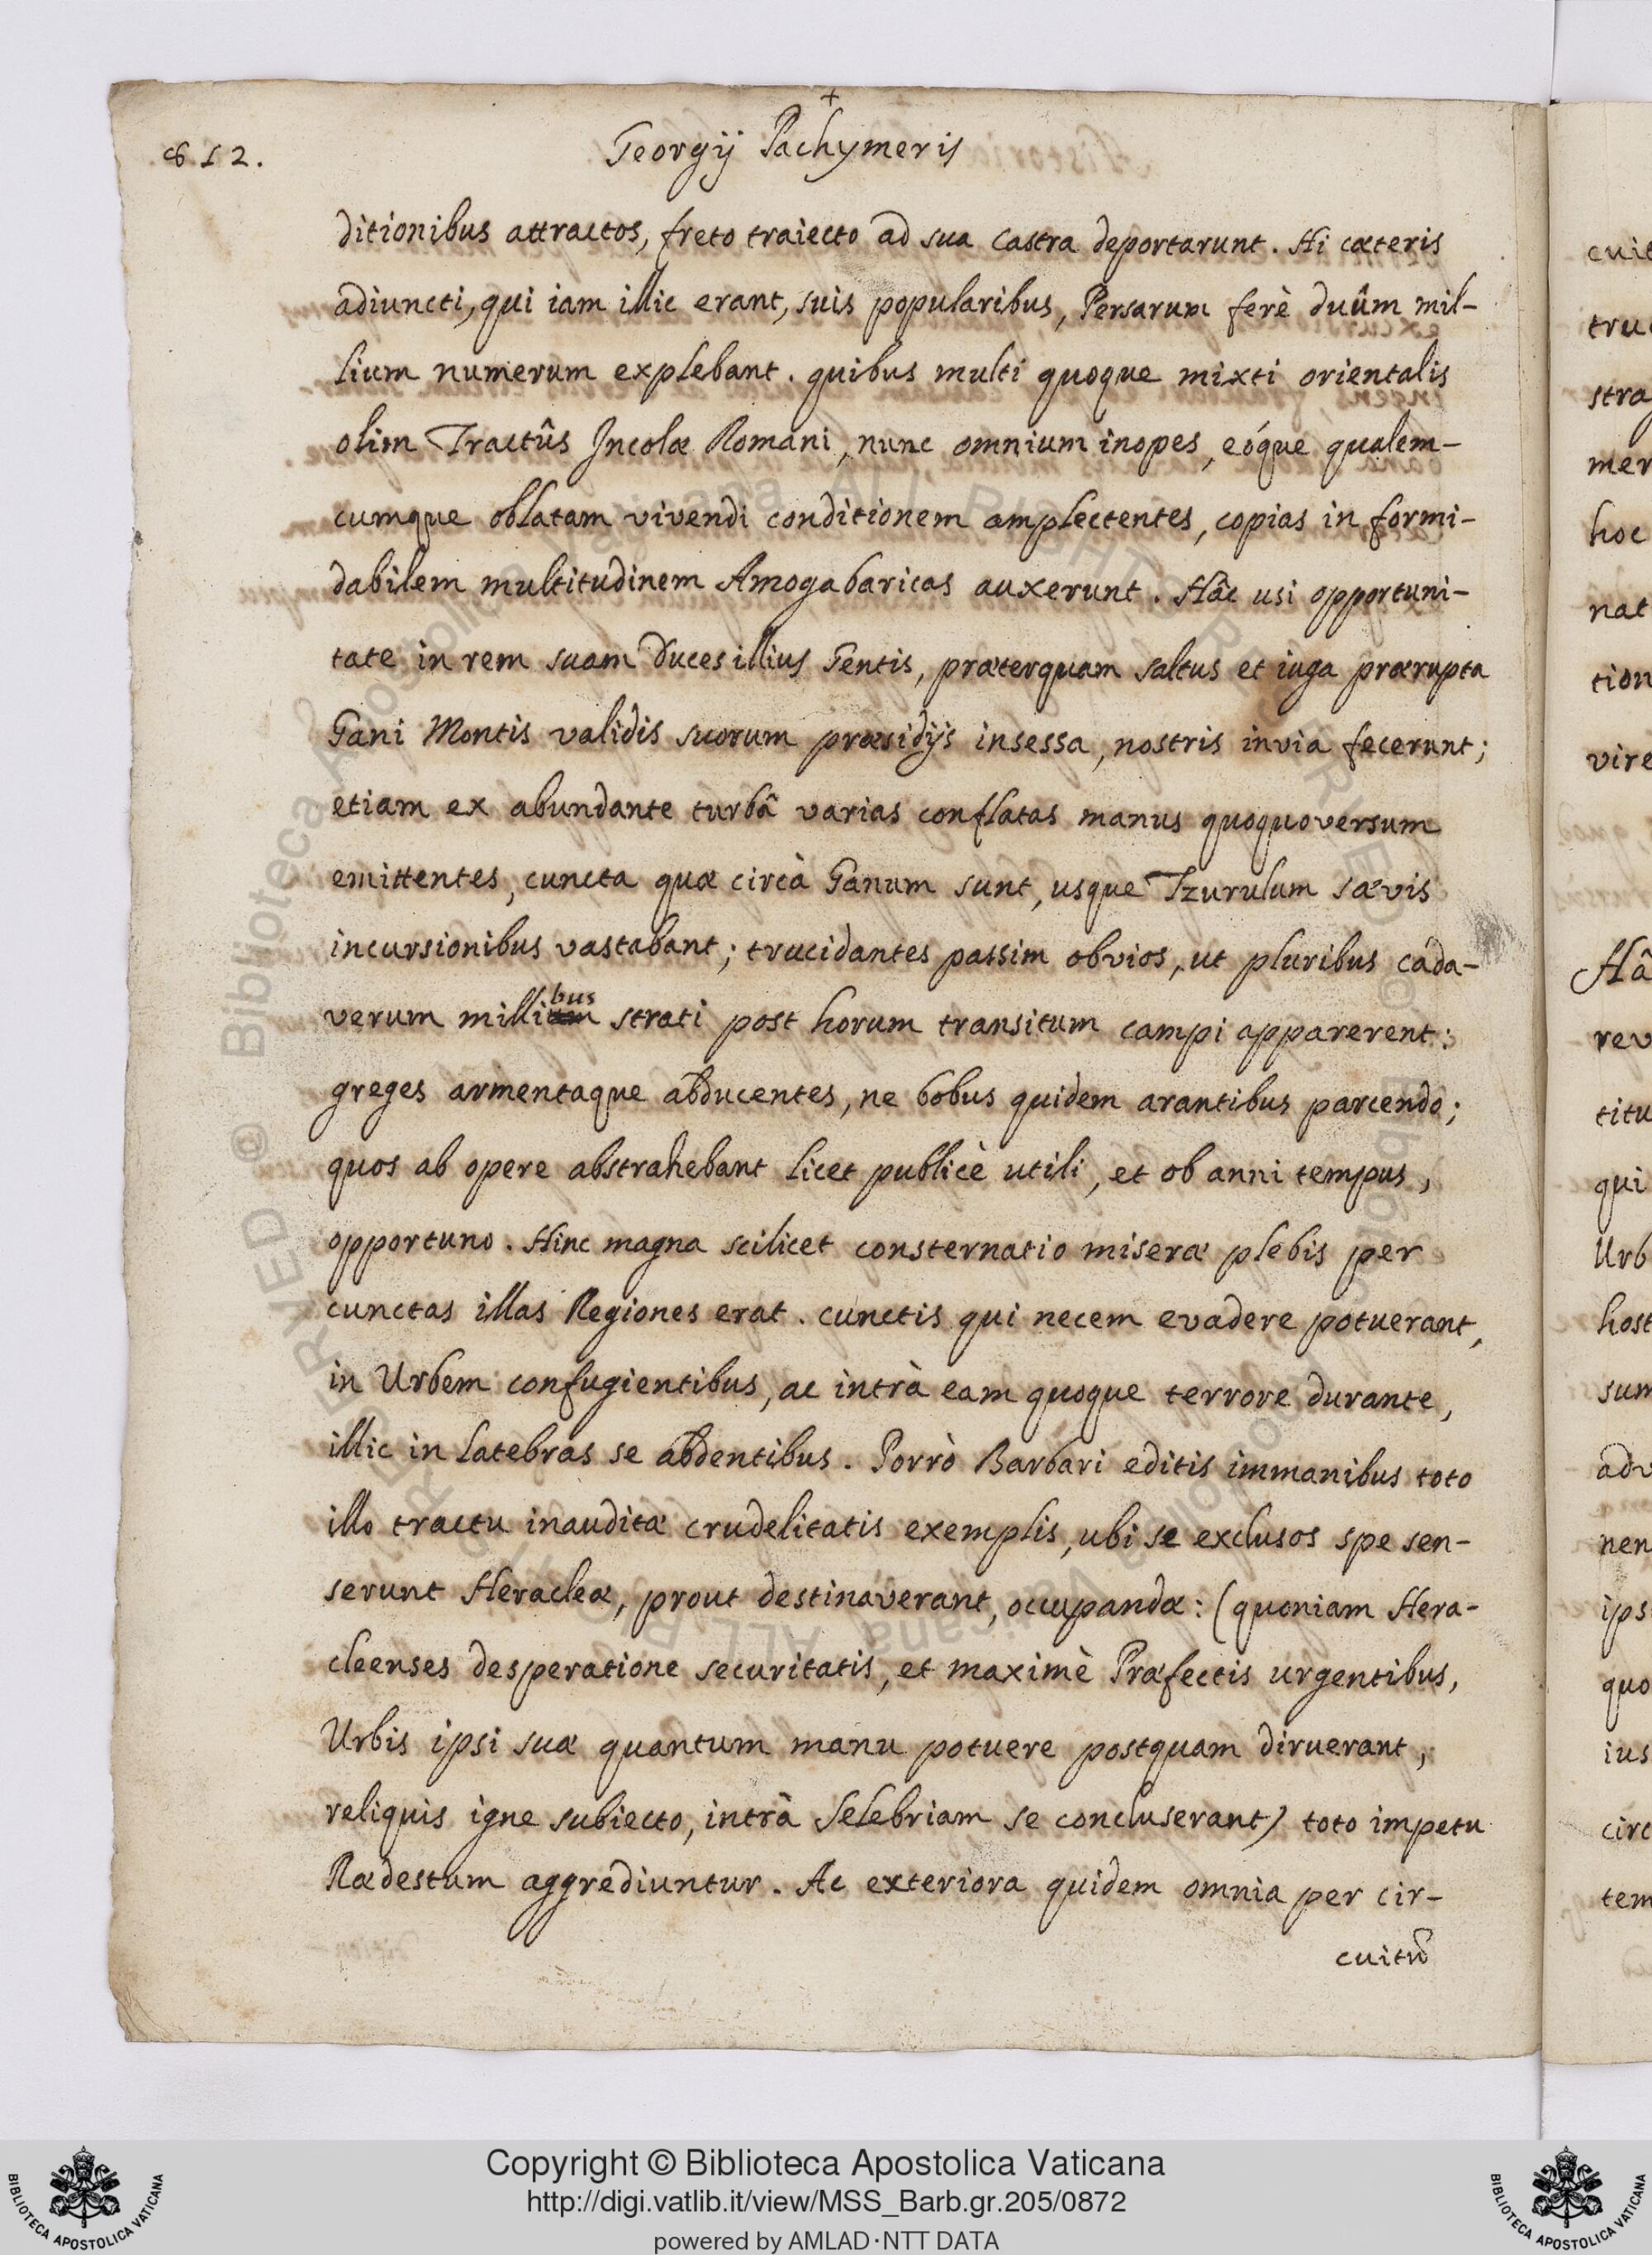 812.
Georgij Pachymeris
ditionibus attractos, freto traiecto ad sua castra deportarunt. Hi cæteris
adiuncti, qui iam illic erant, suis popularibus, Persarum ferè duûm mil-
lium numerum explebant. quibus multi quoque mixti orientalis
olim Tractûs Incolæ Romani, nunc omnium inopes, eóque qualem-
cumque oblatam vivendi conditionem amplectentes, copias in formi-
dabilem multitudinem Amogabaricas auxerunt. Hâc usi opportuni-
tate in rem suam Duces illius Gentis, præterquam saltus et iuga prærupta
Gani Montis validis suorum præsidijs insessa, nostris invia fecerunt;
etiam ex abundante turbâ varias conflatas manus quoquoversum
emittentes, cuncta quæ circà Ganum sunt, usque Tzurulum sævis
incursionibus vastabant; trucidantes passim obvios, ut pluribus cada-
verum millibus strati post horum transitum campi apparerent:
greges armentaque abducentes, ne bobus quidem arantibus parcendo;
quos ab opere abstrahebant licet publicè utili, et ob anni tempus,
opportuno. Hinc magna scilicet consternatio miseræ plebis per
cunctas illas Regiones erat. cunctis qui necem evadere potuerant,
in Urbem confugientibus, ac intrà eam quoque terrore durante,
illic in latebras se abdentibus. Porrò Barbari editis immanibus toto
illo tractu inauditæ crudelitatis exemplis, ubi se exclusos spe sen-
serunt Heracleæ, prout destinaverant, occupandæ: (quoniam Hera-
cleenses desperatione securitatis, et maximè Præfectis urgentibus,
Urbis ipsi suæ quantum manu potuere postquam diruerant,
reliquis igne subiecto, intrà Selebriam se concluserant) toto impetu
Rædestum aggrediuntur. Ac exteriora quidem omnia per cir-
cuitũ
cuit
tru
stra
mer
hoc
nat
tion
vire
Hâ
rev
titu
qui
Urb
host
sum
adv
nen
ips
quo
ius
circ
tem
© Biblioteca Apostolica Vaticana ALL RIGHTS RESERVED
Copyright © Biblioteca Apostolica Vaticana
http://digi.vatlib.it/view/MSS_Barb.gr.205/0872
powered by AMLAD·NTT DATA
BIBLIOTECA APOSTOLICA VATICANA
BIBLIOTECA APOSTOLICA VATICANA